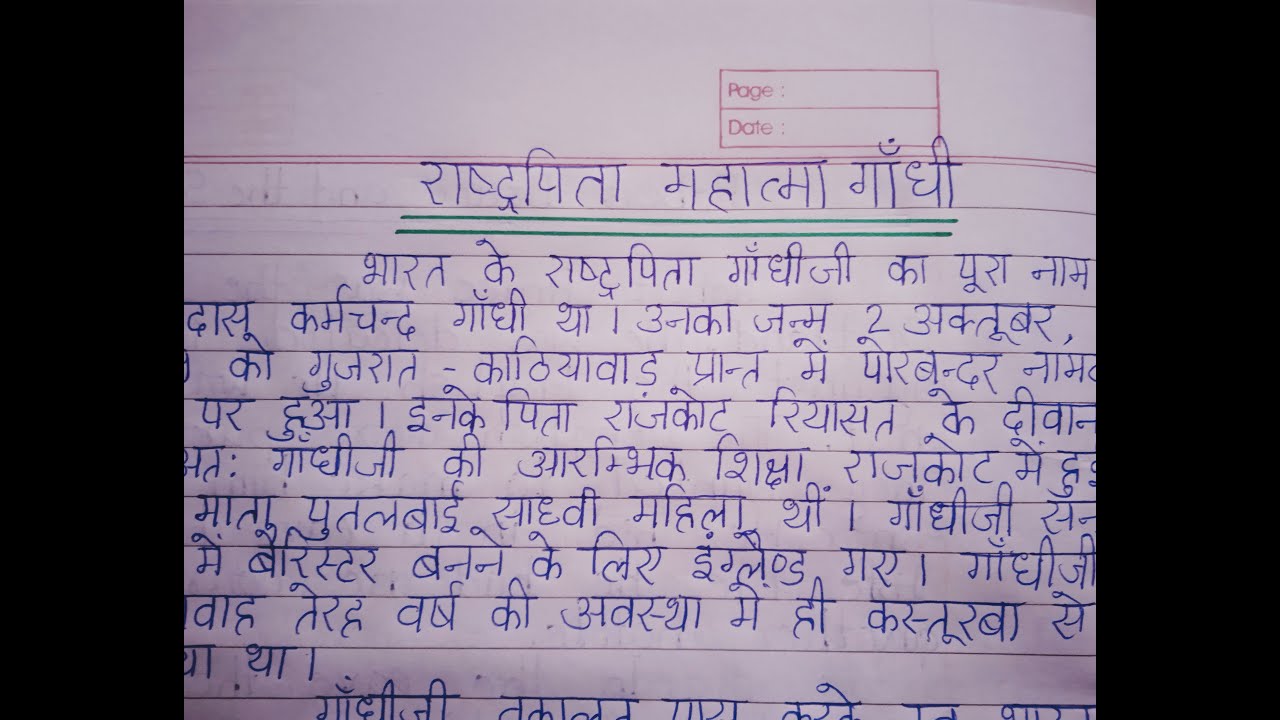 Page :
Date :
राष्ट्रपिता महात्मा गाँधी
भारत के राष्ट्रपिता गाँधीजी का पूरा नाम
दास कर्मचन्द गाँधी था। उनका जन्म 2 अक्तूबर,
को गुजरात - काठियावाड़ प्रान्त में पोरबन्दर
पर हुआ। इनके पिता राजकोट रियासत के दीवान
अतः गाँधीजी की आरम्भिक शिक्षा राजकोट में
माता पुतलबाई साध्वी महिला थीं। गाँधीजी सन्
में बैरिस्टर बनने के लिए इंग्लैण्ड गए। गाँधीजी
वाह तेरह वर्ष की अवस्था में ही कस्तूरबा से
था।
गाँधीजी